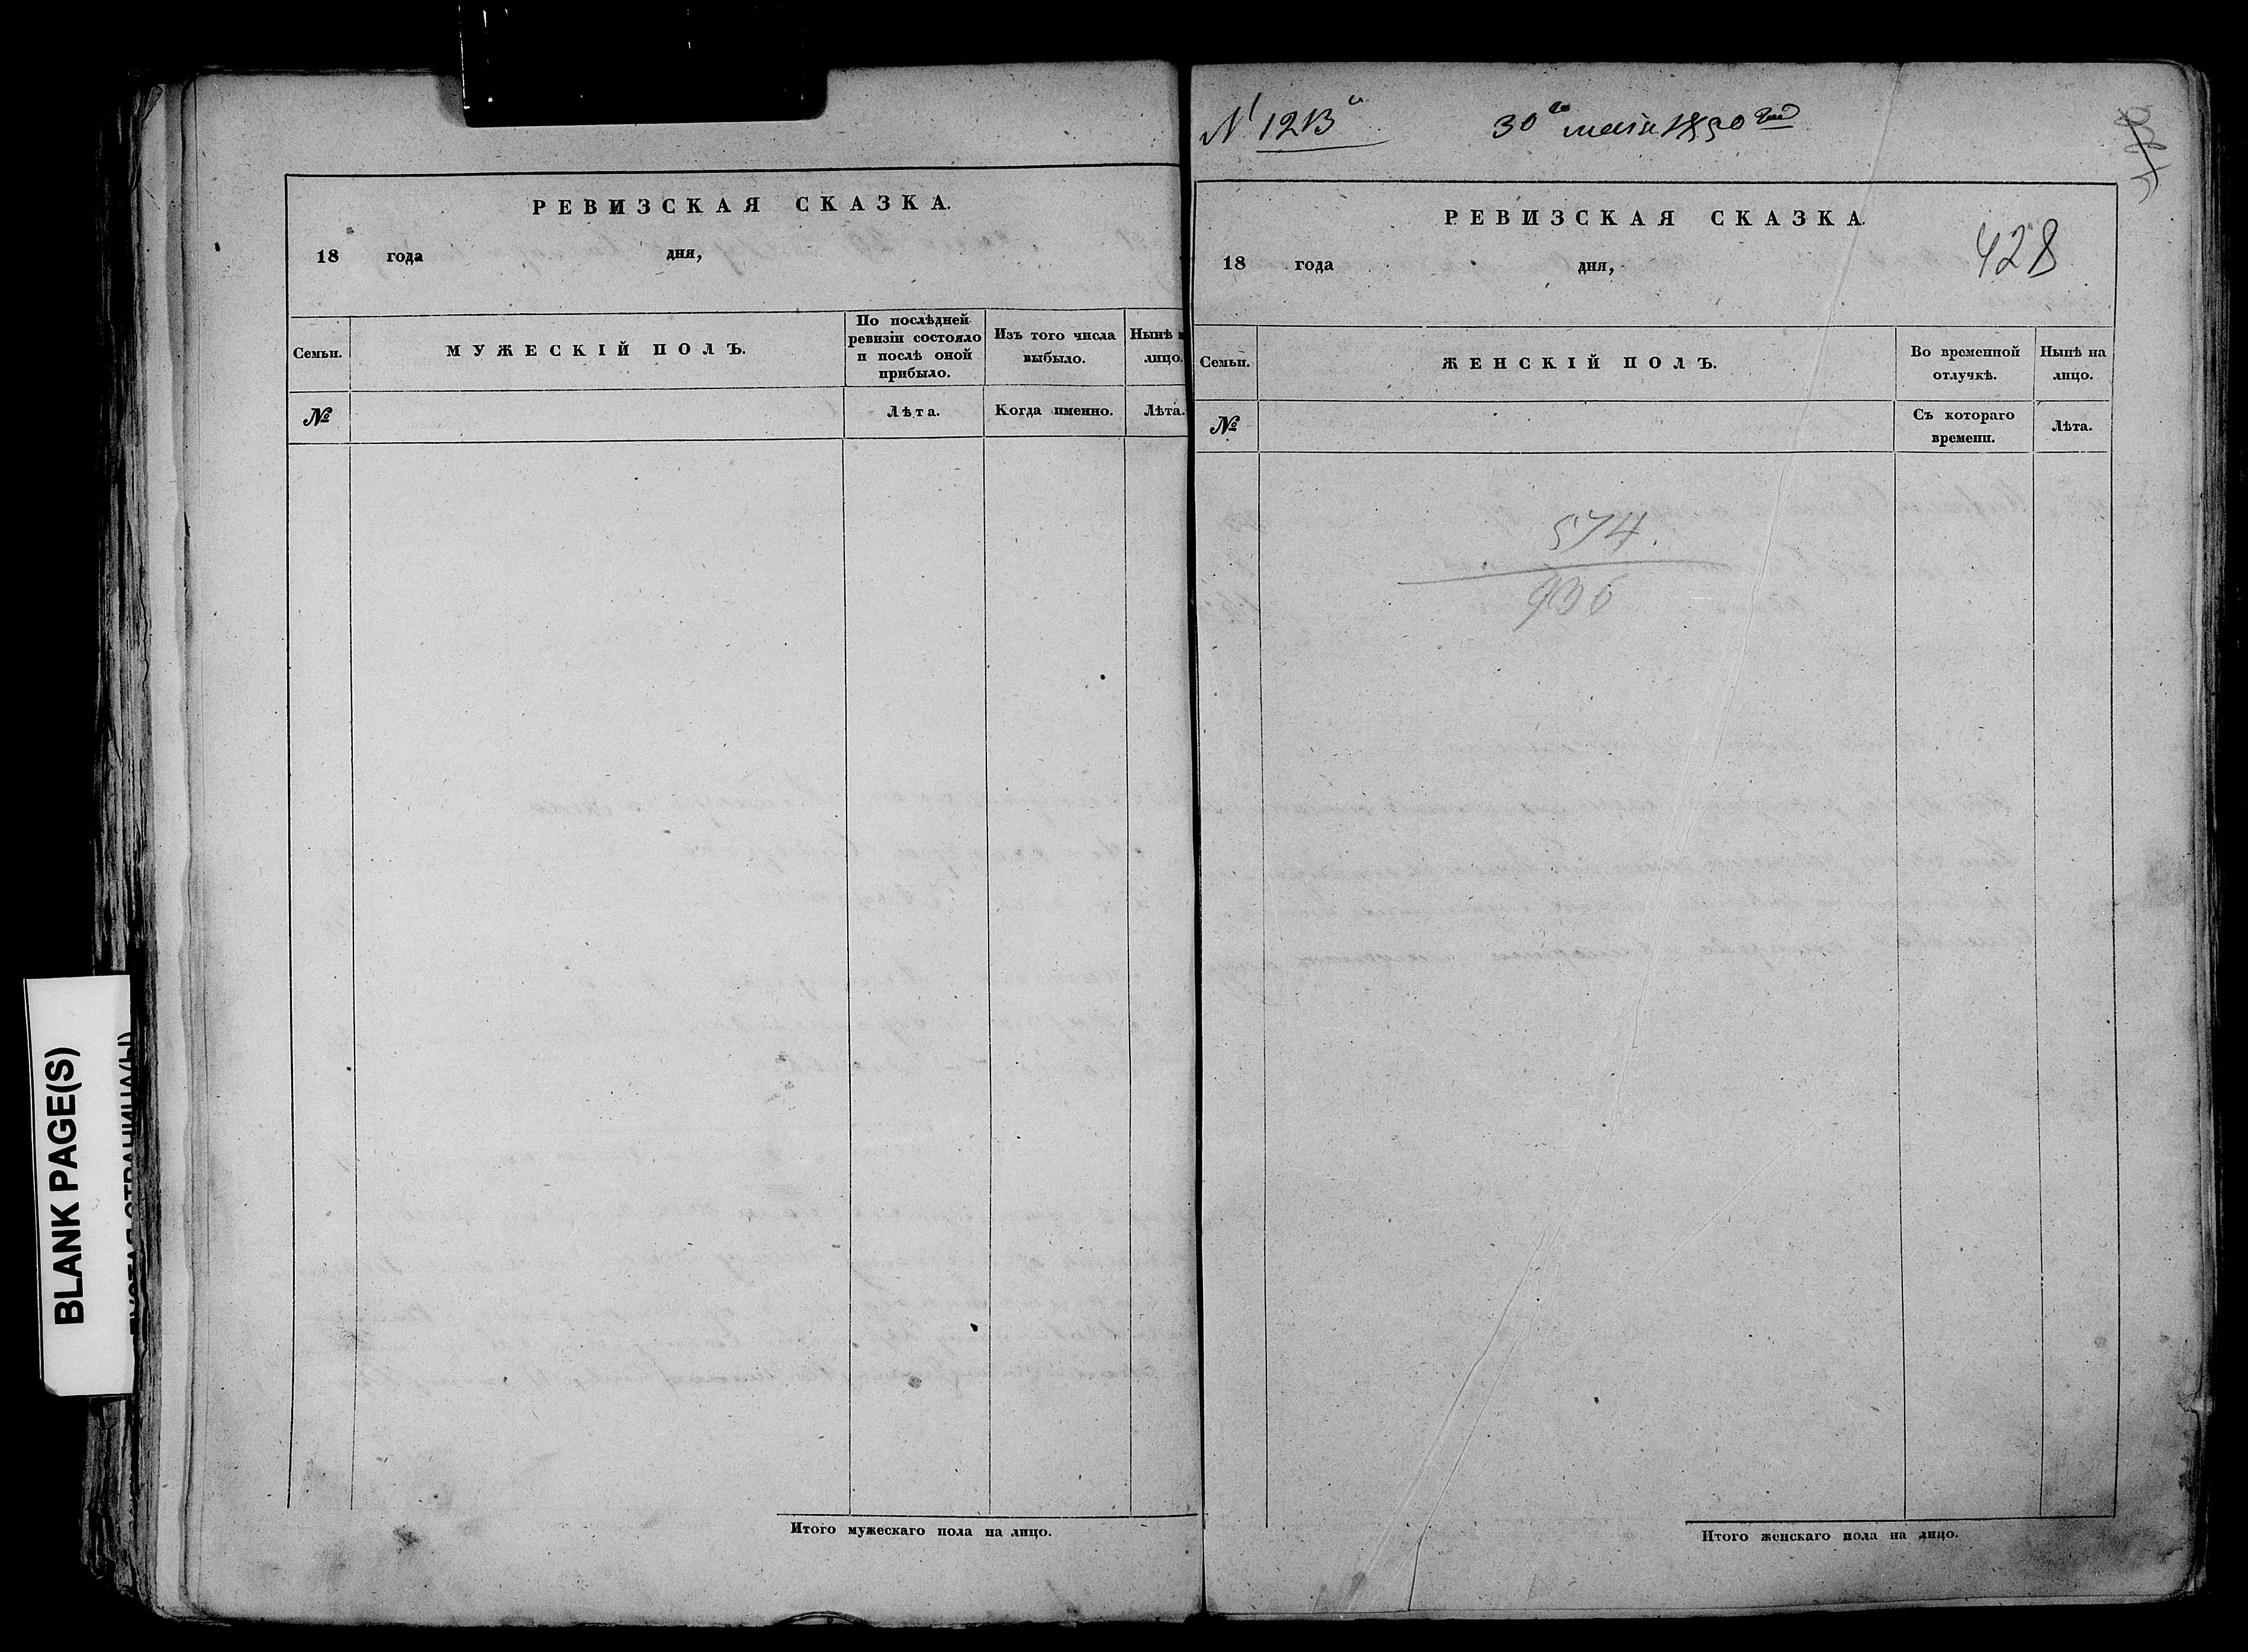 РЕВИЗСКАЯ СКАЗКА.
18 года дня,
Семьи.
МУЖЕСКІЙ ПОЛЪ.
По послѣдней
ревизіи состояло
и послѣ оной
прибыло.
Изъ того числа
выбыло.
Нынѣ
лицо.
№
Лѣта.
Когда именно.
Лѣта.
Итого мужескаго пола на лицо.
30го мая 1850 года
РЕВИЗСКАЯ СКАЗКА.
428
18 года дня,
Семьи.
ЖЕНСКІЙ ПОЛЪ.
Во временной
отлучкѣ.
Нынѣ на
лицо.
№
Съ котораго
времени.
Лѣта.
574.
936
Итого женскаго пола на лицо.
BLANK PAGE(S)